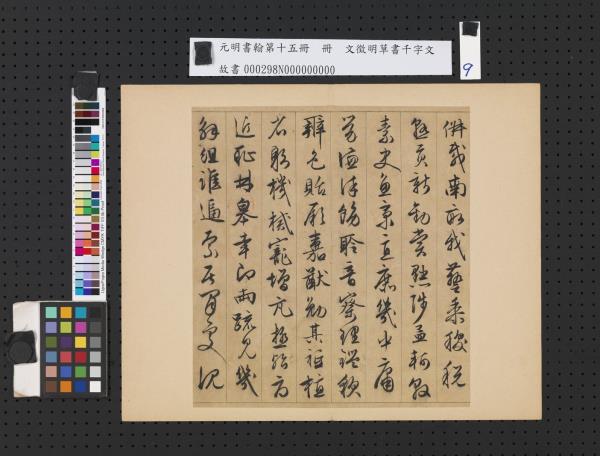 元明書翰第十五冊 冊 文徵明草書千字文
故書 000298N000000000
9
俶載南畝我藝黍稷稅
熟貢新勸賞黜陟孟軻敦
素史魚秉直庶幾中庸
勞謙謹敕聆音察理鑑貌
辨色貽厥嘉猷勉其祗植
省躬譏誡寵增亢極殆辱
近恥林皋幸即兩疏見幾
解組誰逼索居閒處沉